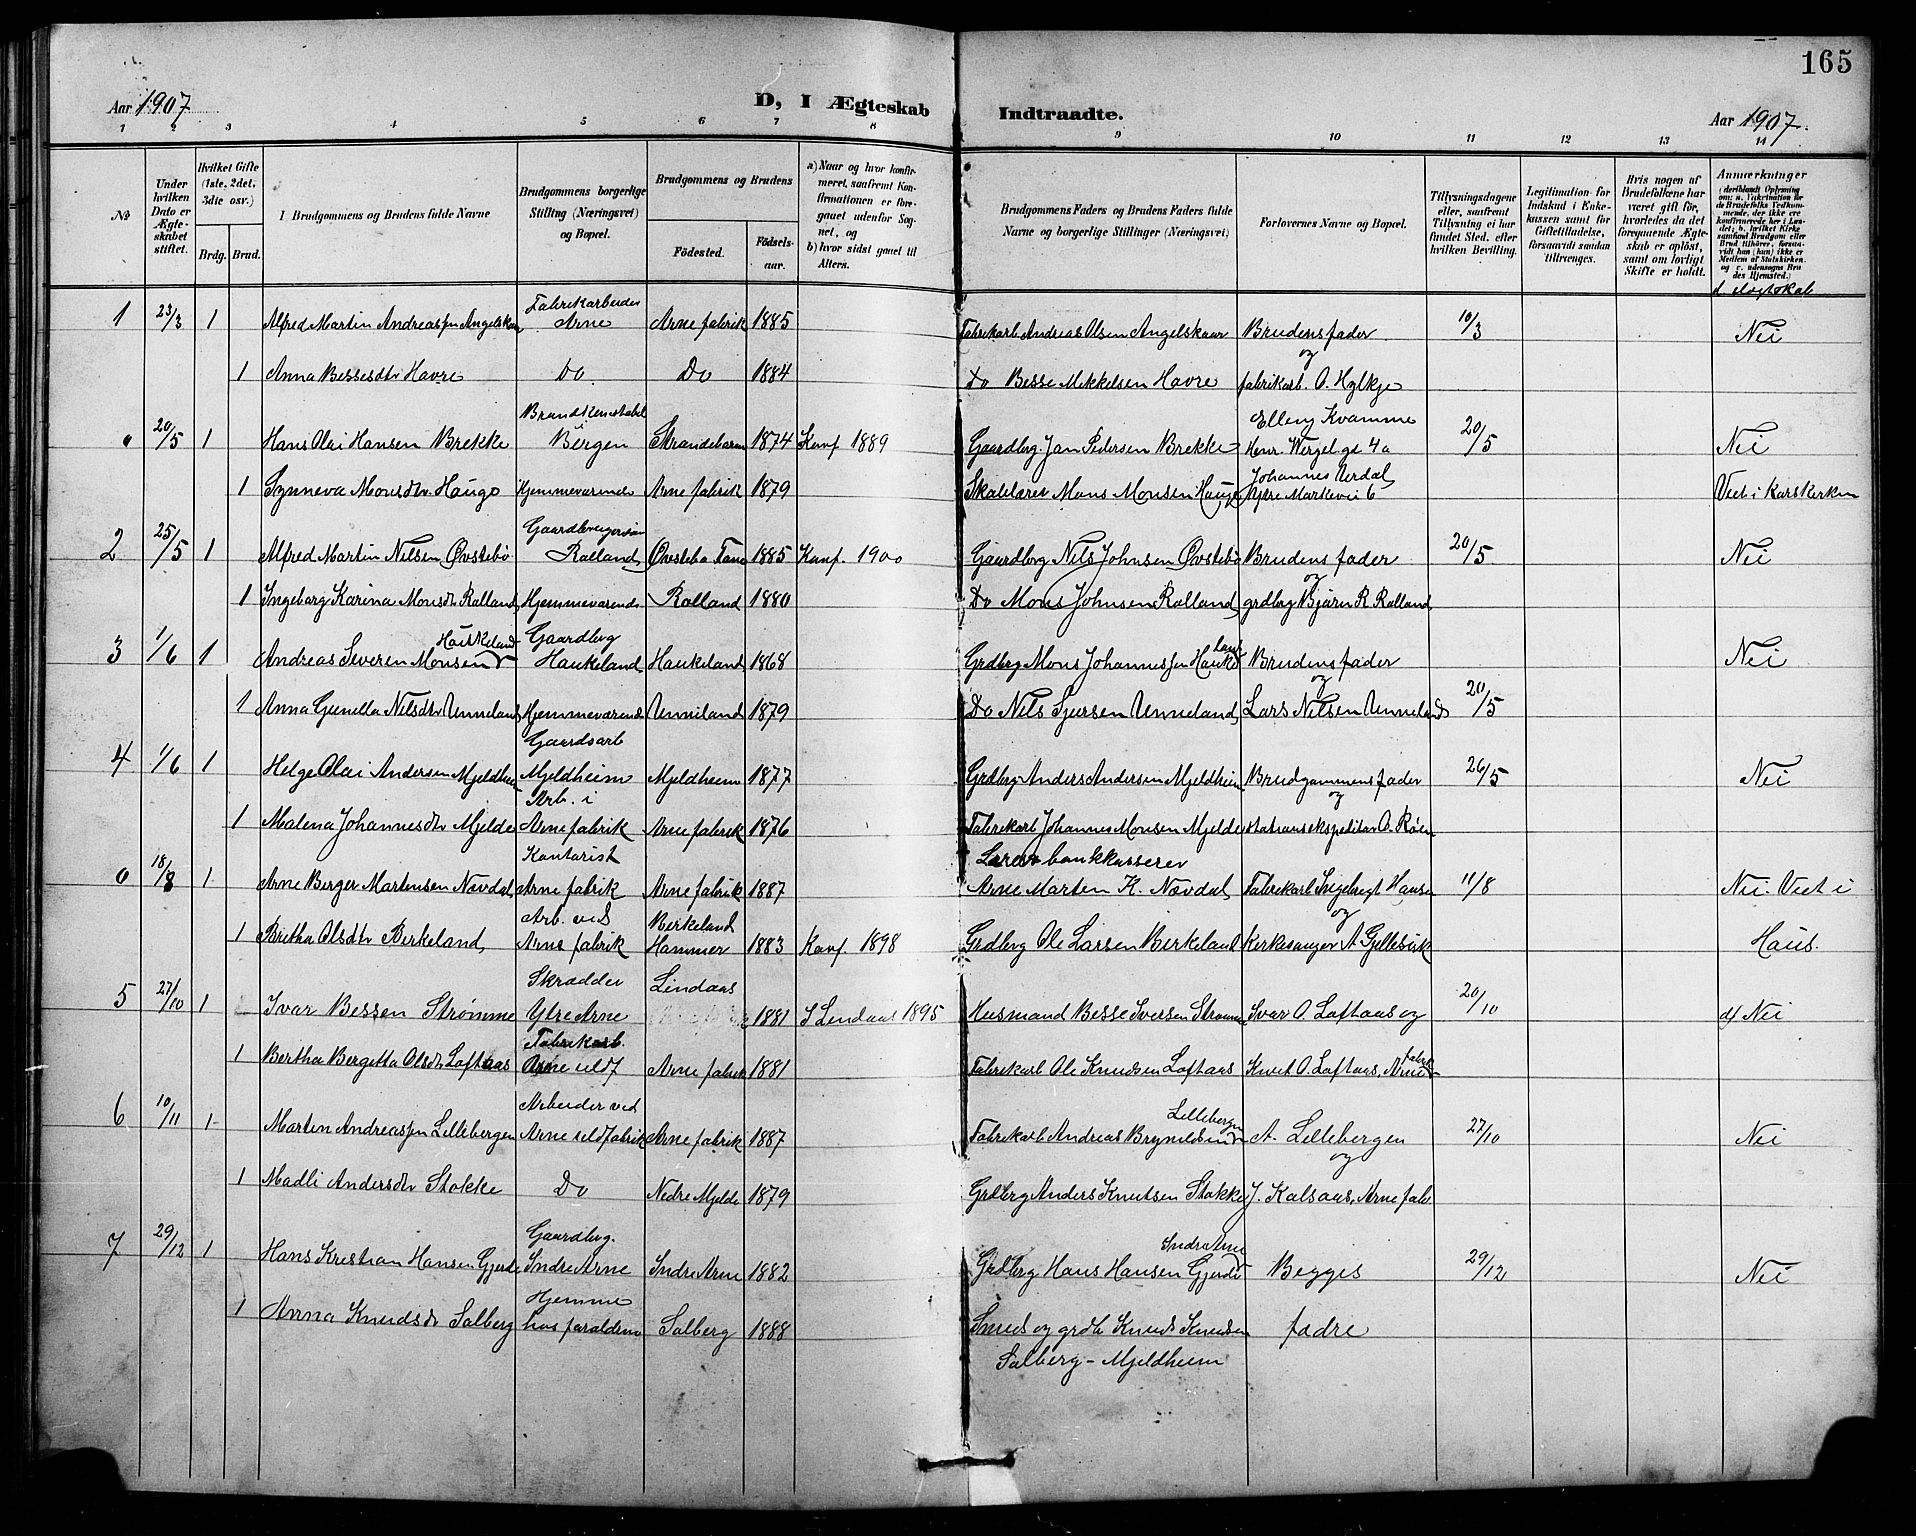 165
Aar 1907
D, I Ægteskab Indtraadte.
Aar 1907.
1 2 3 4 5 6 7 8 9 10 11 12 13 14
No
Under hvilken Dato er Ægteskabet stiftet.
Hvilket Gifte (1ste, 2det, 3die osv.)
Brdg. Brud.
I Brudgommens og Brudens fulde Navne
Brudgommens borgerlige Stilling (Næringsvei) og Bopæl.
Brudgommens og Brudens
Fødested.
Fødselsaar.
a) Naar og hvor konfirmeret, saafremt Konfirmationen er foregaaet udenfor Sognet, og
b) hvor sidst gaaet til Alters.
Brudgommens Faders og Brudens Faders fulde Navne og borgerlige Stillinger (Næringsvei)
Forlovernes Navne og Bopæl.
Tillysningsdagene eller, saafremt Tillysning ei har fundet Sted, efter hvilken Bevilling.
Legitimation for Indskud i Enkekassen samt for Giftetilladelse, forsaavidt saadan tiltrænges.
Hvis nogen af Brudefolkene har været gift før, hvorledes da det foregaaende Ægteskab er opløst, samt om lovligt Skifte er holdt.
Anmærkninger
d. slægtskab
1 23/3 1 Alfred Martin Andreassen Angelskaar Fabrikarbeider Arne Arne fabrik 1885 Fabrikarb Andreas Olsen Angelskaar Brudens fader 10/3 Nei
og
1 Anna Bessesdtr Havre Do Do 1884 Do Besse Mikkelsen Havre fabrikarb. O. Hylkje
0 20/5 1 Hans Olai Hansen Brekke Brandkonstabel i Bergen Strandebarm 1874 Konf 1889 Gaardbrg. Jan Pedersen Brekke Elling Kvamme Henr. Wergel gd 4a 20/5 Nei
1 Synneva Monsdtr. Haugo Hjemmeværende Arne fabrik 1879 Skolelærer Mons Monsen Haugo Johannes Aardal Ytre Markevei 6 Viet i Korskirken
2 25/5 1 Alfred Martin Nilsen Øvstebø Gaardbrugersøn Rolland Øvstebø Fane 1885 Konf. 1900 Gaardbrg Nils Johnsen Øvstebø Brudens fader 20/5 Nei
og
1 Ingeborg Karina Monsdtr Rolland Hjemmeværende Rolland 1880 Do Mons Johnsen Rolland grdbrg Bjørn R. Rolland
3 1/6 1 Andreas Severin Monsen Haukeland Gaardbrg Haukeland Haukeland 1868 Grdbrg Mons Johannessen Haukeland Brudens fader Nei
og
1 Anna Gunella Nilsdtr Unneland Hjemmeværende Unneland 1879 Do Nils Sjursen Unneland Lars Nilsen Unneland 20/5
4 1/6 1 Helge Olai Andersen Mjeldheim Gaardsarb Mjeldheim Mjeldheim 1877 Grdbrg Anders Andersen Mjeldheim Brudgommens fader 26/5 Nei
og
1 Malena Johannesdtr Mjelde Arb. i Arne fabrik Arne fabrik 1876 Fabrikarb Johannes Monsen Mjelde stationsekspeditør O. Røen
0 18/8 1 Arne Berger Martensen Nævdal Kontorist Arne fabrik Arne fabrik 1887 Lærer bankkasserer Arne Marten K. Nævdal Fabrikarb Ingebrigt Hansen 11/8 Nei. Viet i
og
1 Britha Olsdtr Birkeland Arb. ved Arne fabrik Birkeland Hammer 1883 Konf. 1898 Grdbrg Ole Larsen Birkeland Kirkesanger A. Gjellesvik Haus.
5 27/10 1 Ivar Bessen Strømme Skrædder Ytre Arne Lindaas 1881 I Lindaas 1895 Husmand Besse Iversen Strømme Ivar O. Loftaas og 20/10 d) Nei
1 Bertha Bergitta Olsdtr Loftaas Fabrikarb. Arne uldf Arne fabrik 1881 Fabrikarb Ole Knudsen Loftaas Knut O. Loftaas, Arne fabrik
6 10/11 1 Martin Andreassen Lillebergen Arbeider ved Arne uldfabrik Arne fabrik 1887 Fabrikarb Andreas Brynildsen Lillebergen A. Lillebergen 27/10 Nei
og
1 Madli Andersdtr Stokke Do Nedre Mjelde 1879 Grdbrg Anders Knutsen Stokke J. Kalsaas, Arne fabr.
7 29/12 1 Hans Kristian Hansen Gjerde Gaardbrg. Indre Arne Indre Arne 1882 Grdbrg Hans Hansen Gjerde Indre Arne Begges 29/12 Nei
1 Anna Knudsdtr Solberg Hjemme hos forældrene Solberg 1888 Smed og grdb Knud Knudsen fadre
Solberg - Mjeldheim